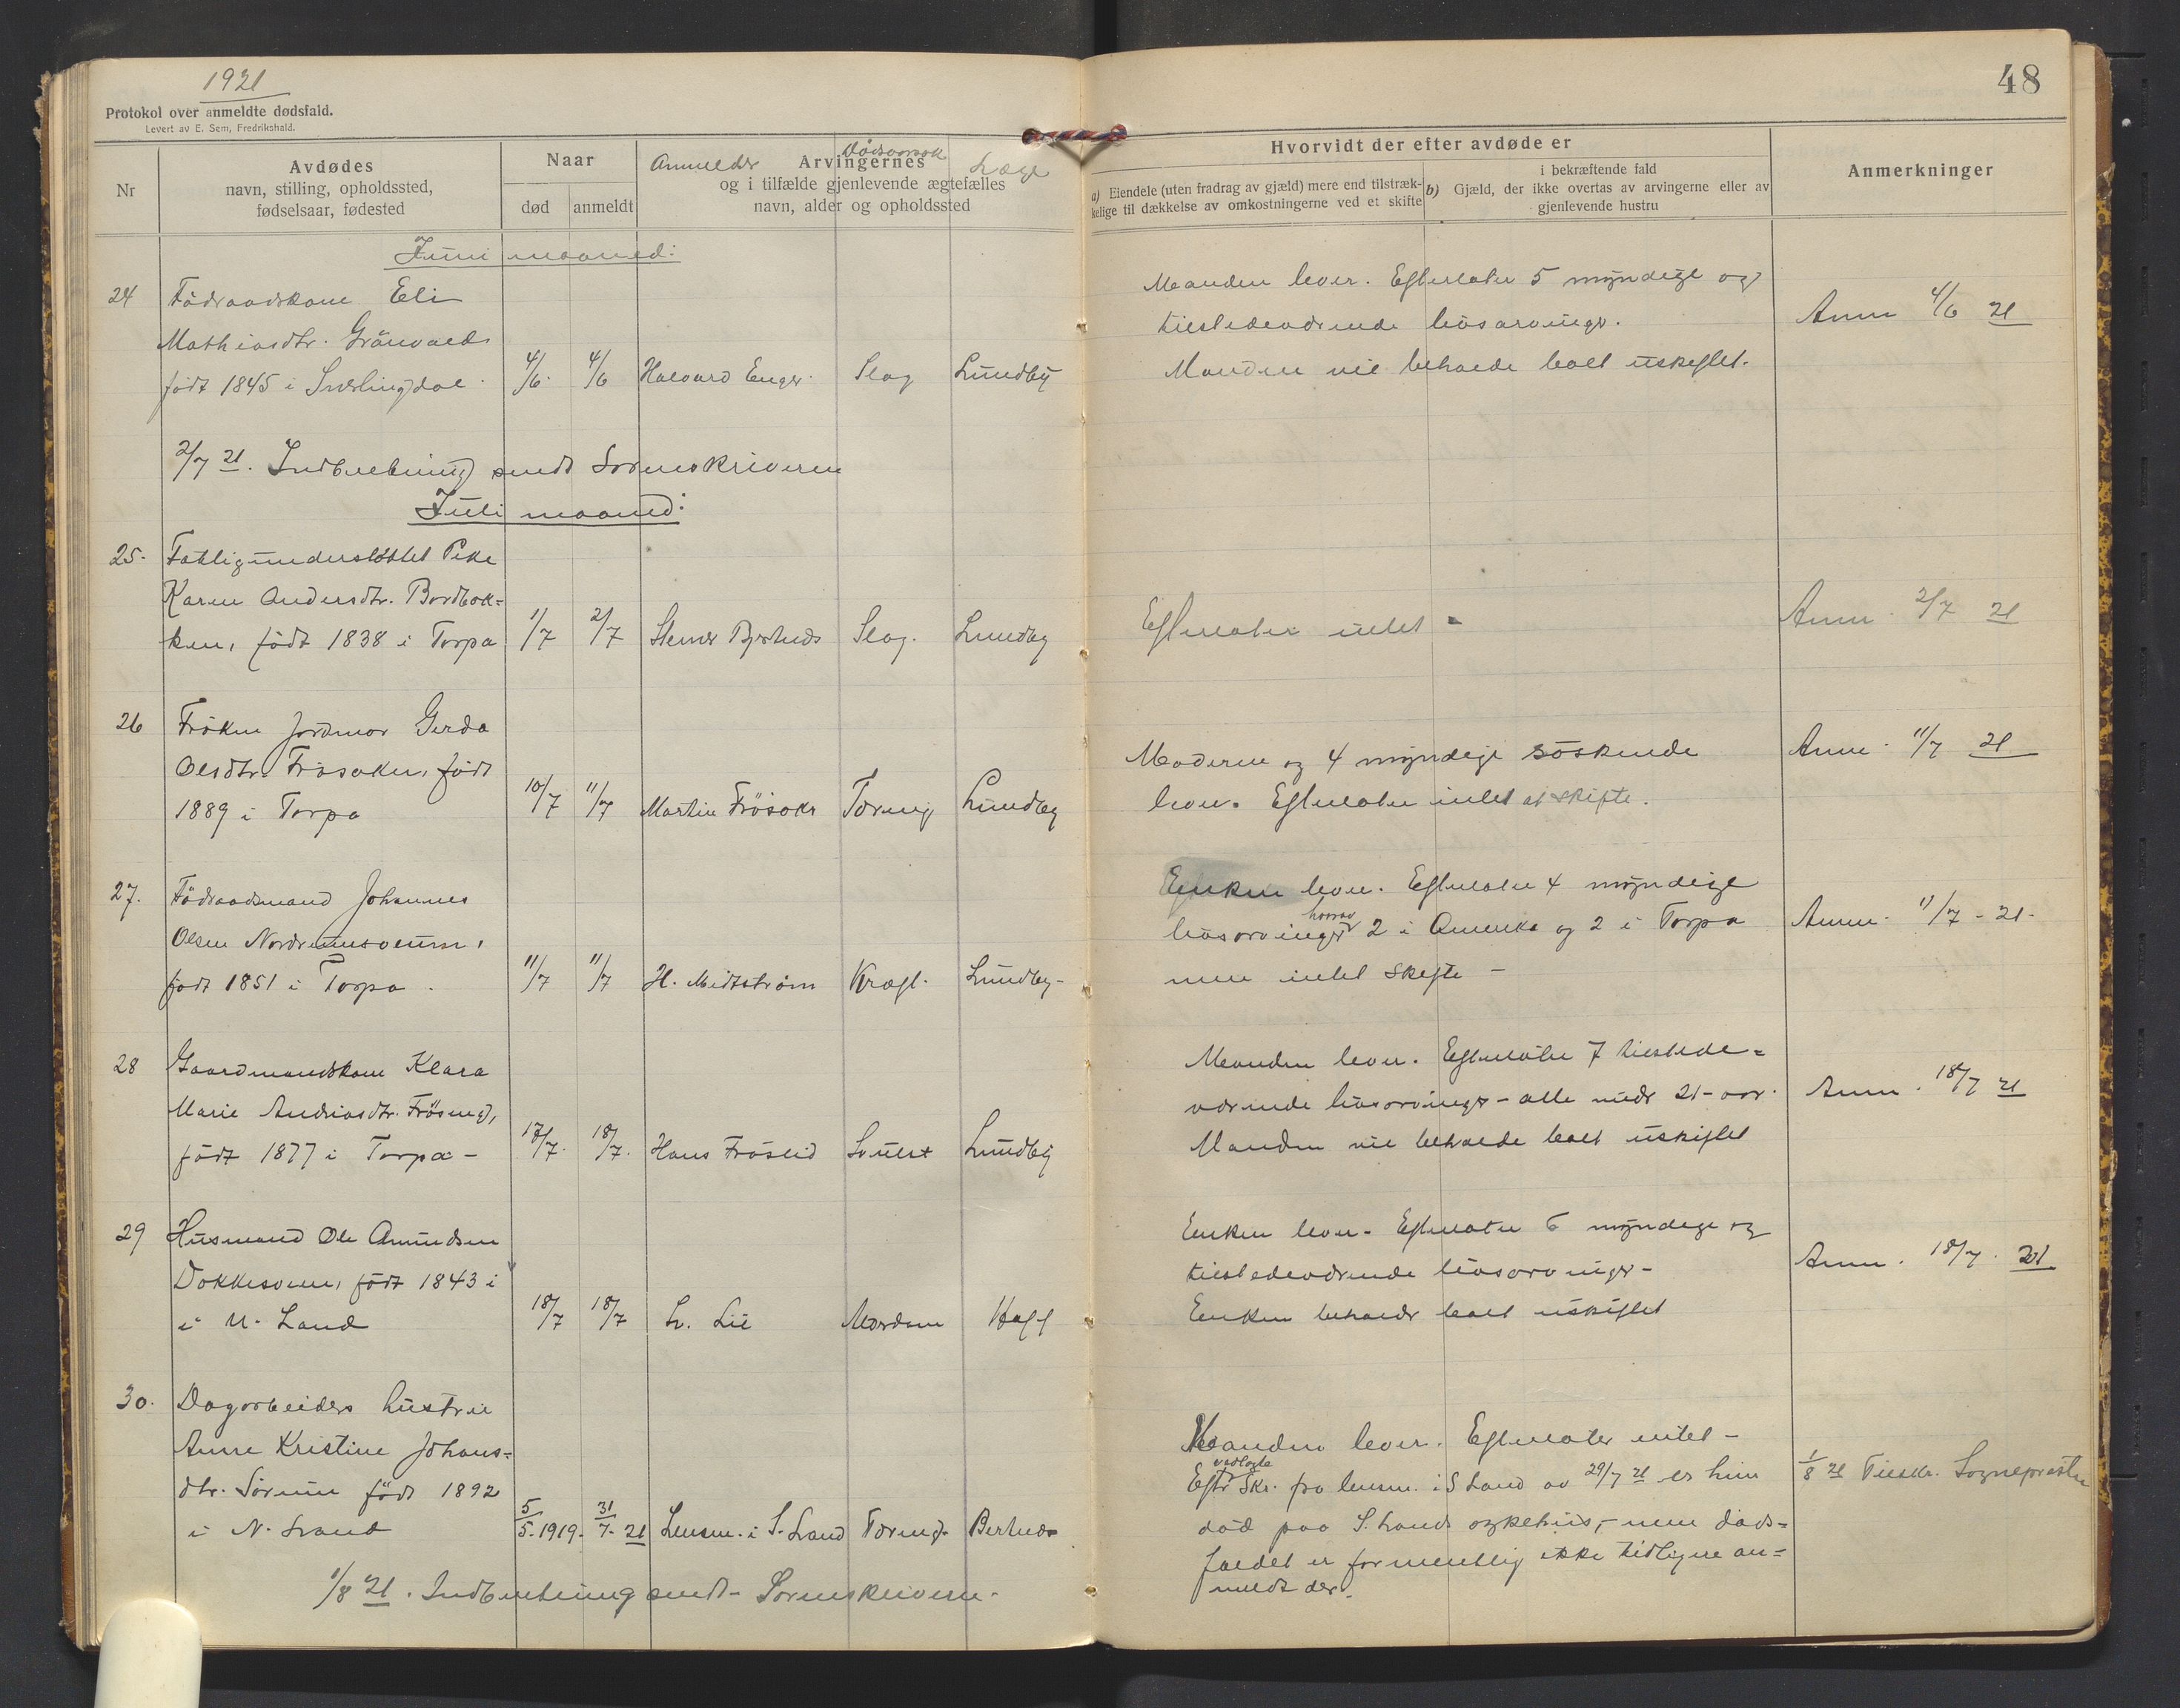 1921
Protokol over anmeldte dødsfald.
Levert av E. Sem, Fredrikshald.
48
Nr
Avdødes
navn, stilling, opholdssted,
fødselsaar, fødested
Naar
død
anmeldt
Anmelder
Dødsaarsak
Læge
Arvingernes
og i tilfælde gjenlevende ægtefælles
navn, alder og opholdssted
Hvorvidt der efter avdøde er
a) Eiendele (uten fradrag av gjæld) mere end tilstræk-
kelige til dækkelse av omkostningerne ved et skifte
i bekræftende fald
b) Gjæld, der ikke overtas av arvingerne eller av
gjenlevende hustru
Anmerkninger
Juni maaned:
24 Födraadskone Eli
Mathiasdtr. Grönvold
født 1845 i Sværlingdal. 4/6. 4/6 Halvard Enger. Slag Lundby
Manden lever. Efterlater 5 myndige og
tilstedeværende livsarvinger.
Manden vil beholde boet uskiftet.
Anm 4/6 21
2/7 21. Indberetning sendt Sorenskriveren
Juli maaned:
25. Fattigunderstøttet Pike
Karen Andersdtr. Bordbak-
ken, født 1838 i Torpa 1/7 2/7 Steiner Slag. Lundby
Efterlater intet -
Anm. 2/7 21
26 Frøken Jordmor Gerda
Olsdtr. Frøsaker, født
1889 i Torpa 10/7 11/7 Martin Frøsaker Tæring Lundby
Moderen og 4 myndige søskende
lever. Efterlater intet at skifte.
Anm. 11/7 21
27. Födraadsmand Johannes
Olsen
født 1851 i Torpa. 11/7 11/7 H. Midtstrøm Kræft. Lundby-
Enken lever. Efterlater 4 myndige
livsarvinger hvorav 2 i Amerika og 2 i Torpa
men intet skifte -
Anm. 11/7 - 21.
28 Gaardmandskone Klara
Marie Andriasdtr.
født 1877 i Torpa - 17/7. 18/7. Hans Frøslid Svulst Lundby
Manden lever. Efterlater 7 tilstede-
værende livsarvinger - alle under 21 - aar.
Manden vil beholde boet uskiftet
Anm. 18/7 21
29 Husmand Ole Amundsen
Dokksveen, født 1843 i
i N. Land 18/7 18/7 L. Lie
Enken lever. Efterlater 6 myndige og
tilstedeværende livsarvinger -
Enken beholder boet uskiftet
Anm. 18/7. 21
30. Dagarbeiders hustru
Anne Kristine Johans-
dtr. Sørum født 1892
i N. Land 5/5. 1919. 31/7. 21 Lensm. i S. Land Tæring.
Manden lever. Efterlater intet -
Efter vedlagte Skr. fra lensm. i S Land av 29/7 21 er hun
død paa S. Lands sykehus, - men døds-
faldet er formentlig ikke tidligere an-
meldt der.
1/8 21 Tilskr. Sognepresten
1/8 21. Indberetning sendt - Sorenskriveren.